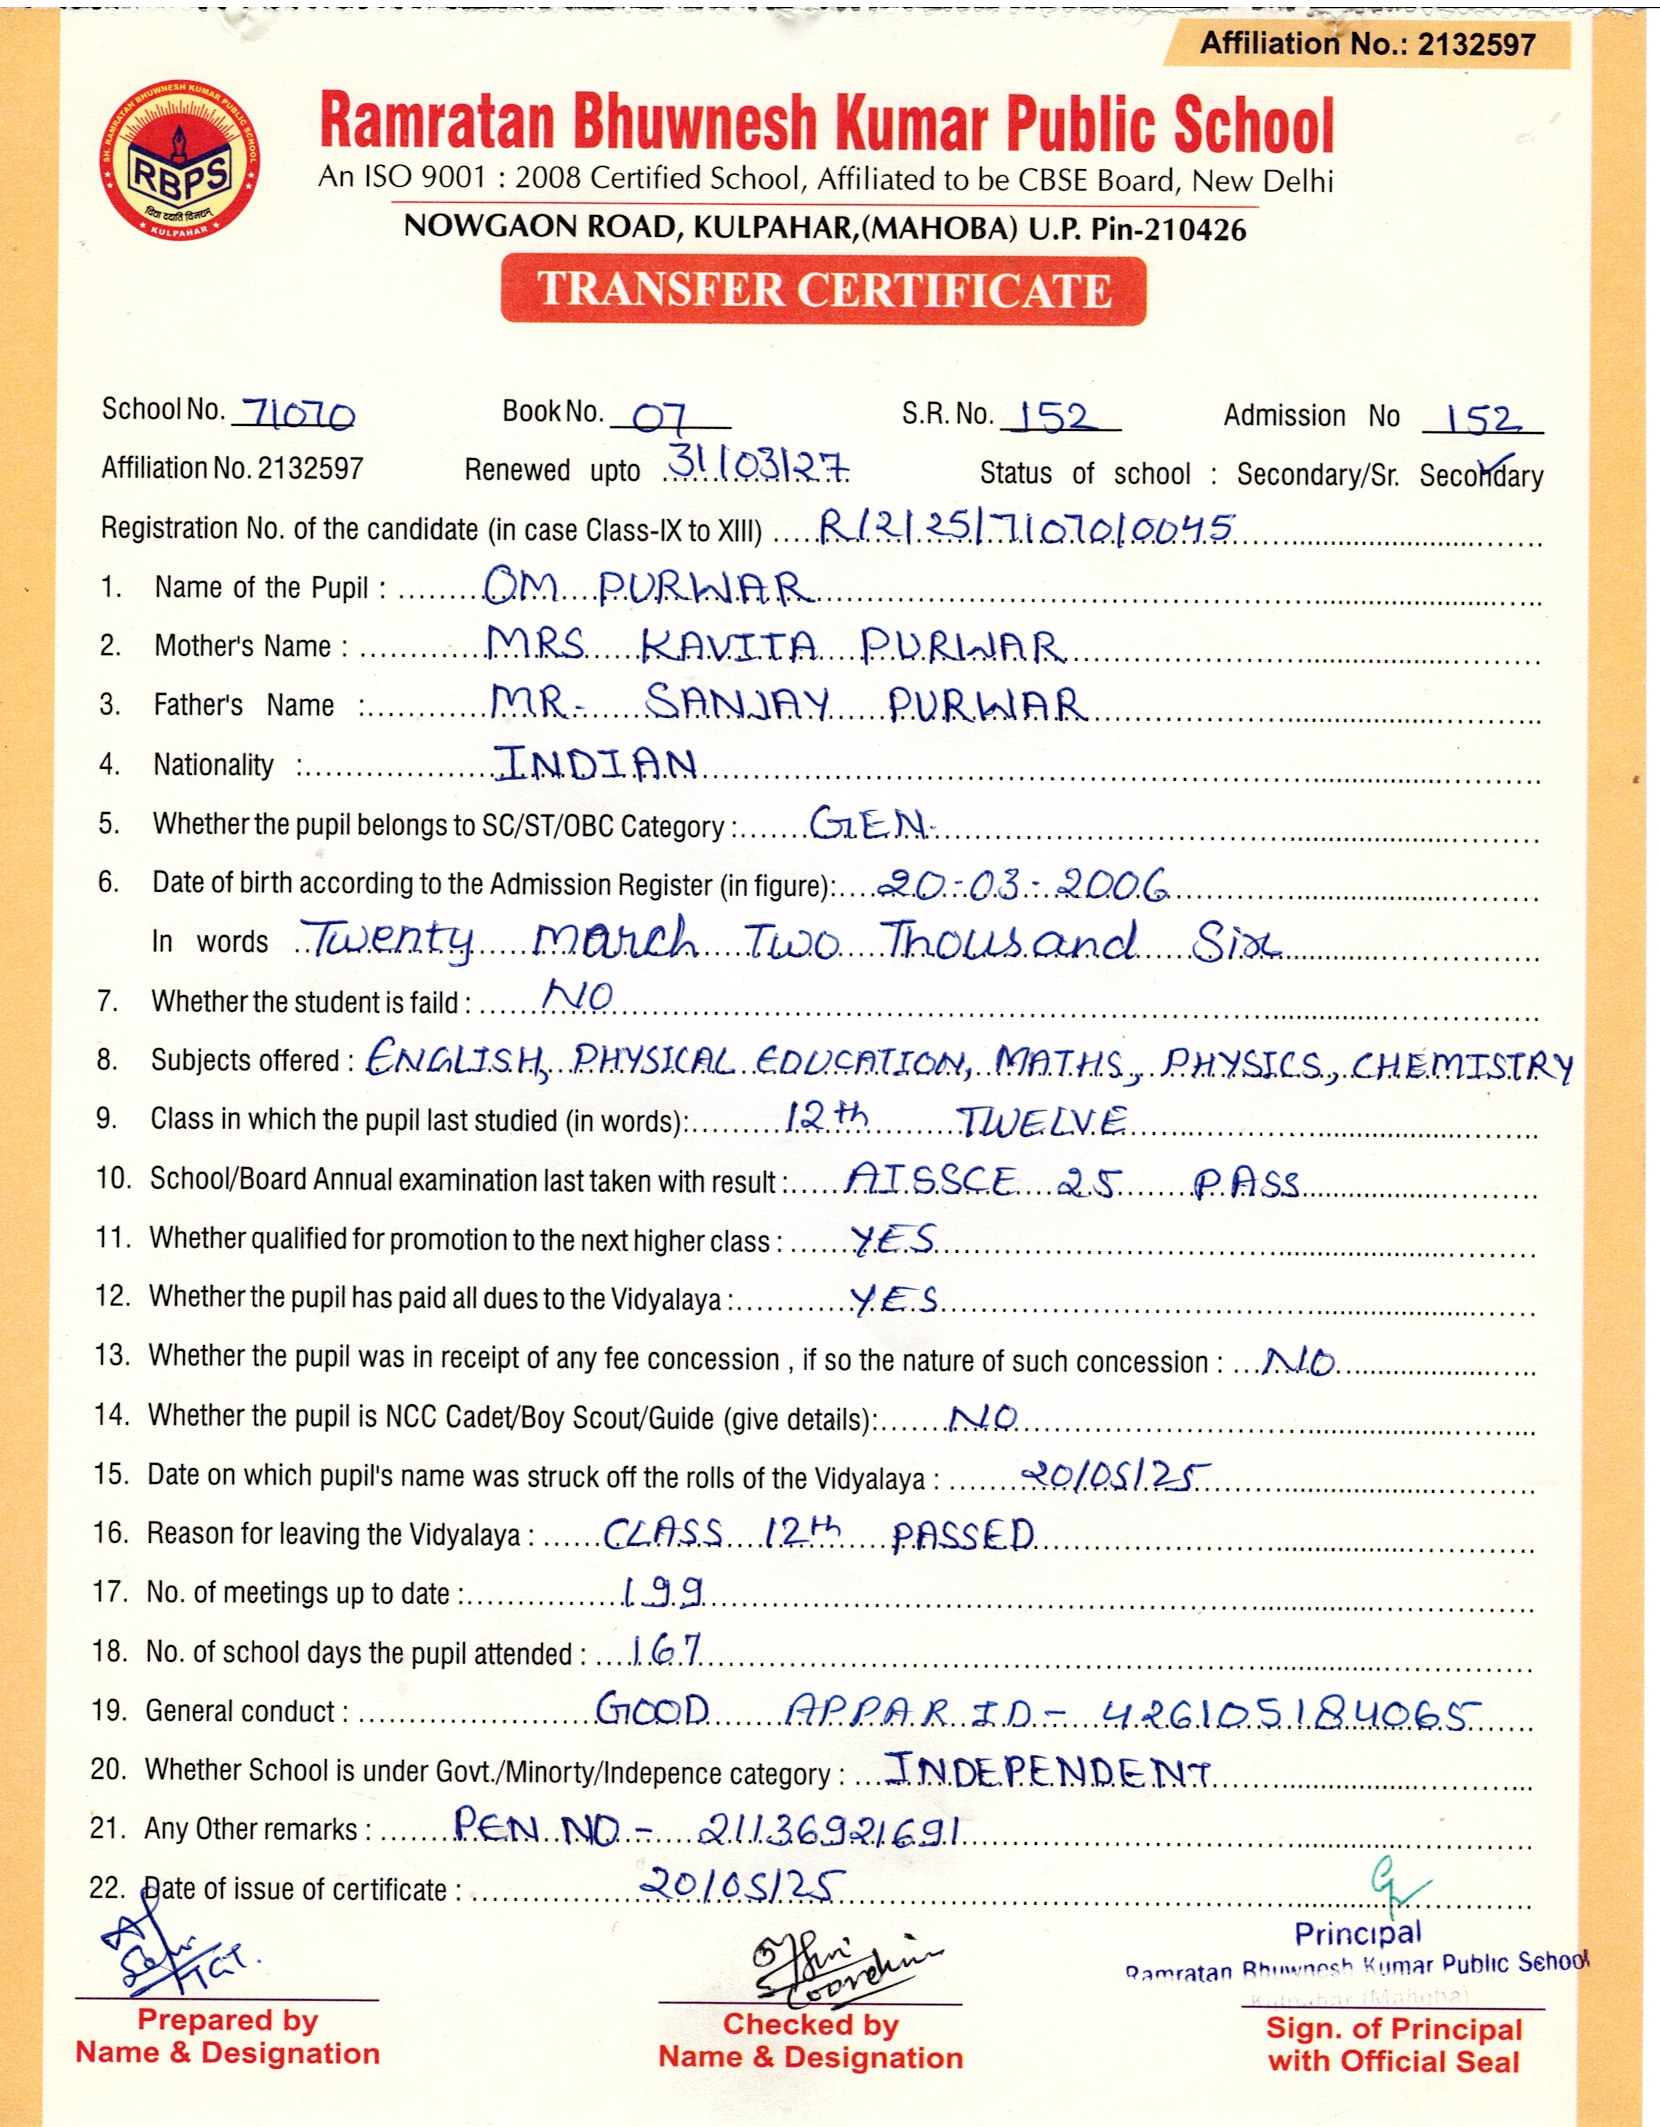 Affiliation No.: 2132597
SH. RAMRATAN BHUWNESH KUMAR PUBLIC SCHOOL
RBPS
विद्या ददाति विनयम्
KULPAHAR
Ramratan Bhuwnesh Kumar Public School
An ISO 9001 : 2008 Certified School, Affiliated to be CBSE Board, New Delhi
NOWGAON ROAD, KULPAHAR,(MAHOBA) U.P. Pin-210426
TRANSFER CERTIFICATE
School No. 71070 Book No. 07 S.R. No. 152 Admission No 152
Affiliation No. 2132597 Renewed upto 31/03/27 Status of school : Secondary/Sr. Secondary
Registration No. of the candidate (in case Class-IX to XIII) R/2/25/71070/0045
1. Name of the Pupil : OM PURWAR
2. Mother's Name : MRS KAVITA PURWAR
3. Father's Name : MR. SANJAY PURWAR
4. Nationality : INDIAN
5. Whether the pupil belongs to SC/ST/OBC Category : GEN.
6. Date of birth according to the Admission Register (in figure): 20-03-2006
In words Twenty March Two Thousand Six
7. Whether the student is faild : NO
8. Subjects offered : ENGLISH, PHYSICAL EDUCATION, MATHS, PHYSICS, CHEMISTRY
9. Class in which the pupil last studied (in words): 12th TWELVE
10. School/Board Annual examination last taken with result : AISSCE 25 PASS
11. Whether qualified for promotion to the next higher class : YES
12. Whether the pupil has paid all dues to the Vidyalaya : YES
13. Whether the pupil was in receipt of any fee concession , if so the nature of such concession : NO
14. Whether the pupil is NCC Cadet/Boy Scout/Guide (give details): NO
15. Date on which pupil's name was struck off the rolls of the Vidyalaya : 20/05/25
16. Reason for leaving the Vidyalaya : CLASS 12th PASSED
17. No. of meetings up to date : 199
18. No. of school days the pupil attended : 167
19. General conduct : GOOD APPAR ID - 426105184065
20. Whether School is under Govt./Minorty/Indepence category : INDEPENDENT
21. Any Other remarks : PEN NO - 21136921691
22. Date of issue of certificate : 20/05/25
TGT.
Principal
Ramratan Bhuwnesh Kumar Public School
Kulpahar (Mahoba)
Prepared by Checked by Sign. of Principal
Name & Designation Name & Designation with Official Seal